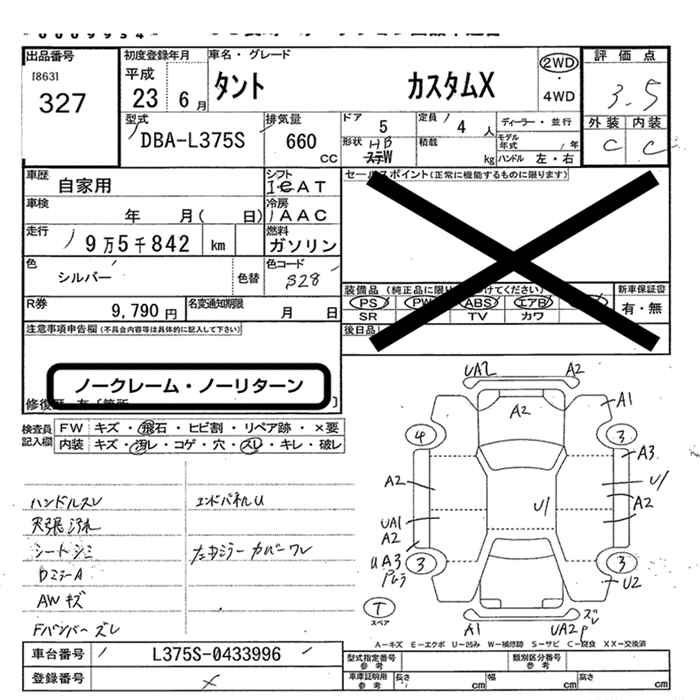 出品番号
[863]
327
初度登録年月
平成
23 6 月
車名・グレード
タント カスタムX
2WD
・
4WD
評価点
3.5
外装 内装
C C
型式
DBA-L375S
排気量
660
CC
ドア
5
定員
4 人
ディーラー・並行
形状 HB
ステW
積載
kg
モデル年式 / 年
ハンドル 左・右
車歴
自家用
シフト
車検
年 月( 日)
冷房
AAC
走行
9万5千842 km
燃料
ガソリン
色
シルバー
色替
色コード
S28
R券
9,790 円
名変通知期限
月 日
セールスポイント(正常に機能するものに限ります)
装備品
PS PW ABS エアB
SR TV カワ
新車保証書
有・無
後日品
注意事項申告欄(不具合内容等は具体的に記入して下さい)
ノークレーム・ノーリターン
検査員記入欄
FW キズ・飛石・ヒビ割・リペア跡・×要
内装 キズ・汚レ・コゲ・穴・スレ・キレ・破レ
ハンドルスレ
エンドパネルU
天張汚れ
シートシミ
AWキズ
Fバンパーズレ
UA2
A2
A2
A1
4
3
A3
A2
U/
A2
UA1
A2
U/
UA3
3
3
U2
T
スペア
A1
UA2
ズレ
A-キズ E-エクボ U-凹み W-補修跡 S-サビ C-腐食 XX-交換済
車台番号
L375S-0433996
登録番号
型式指定番号
参考
類別区分番号
参考
車庫証明用
参考
長さ cm
幅 cm
高さ cm